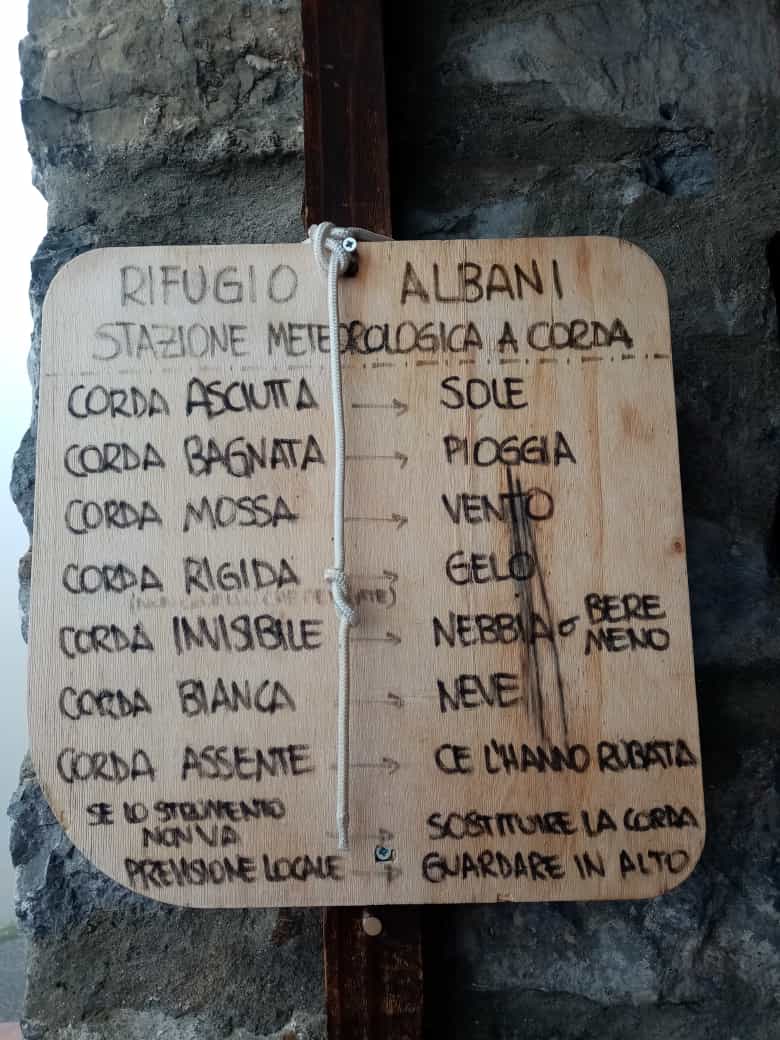 RIFUGIO ALBANI
STAZIONE METEOROLOGICA A CORDA
CORDA ASCIUTTA → SOLE
CORDA BAGNATA → PIOGGIA
CORDA MOSSA → VENTO
CORDA RIGIDA → GELO
CORDA INVISIBILE → NEBBIA o BERE MENO
CORDA BIANCA → NEVE
CORDA ASSENTE → CE L'HANNO RUBATA
SE LO STRUMENTO NON VA → SOSTITUIRE LA CORDA
PREVISIONE LOCALE → GUARDARE IN ALTO